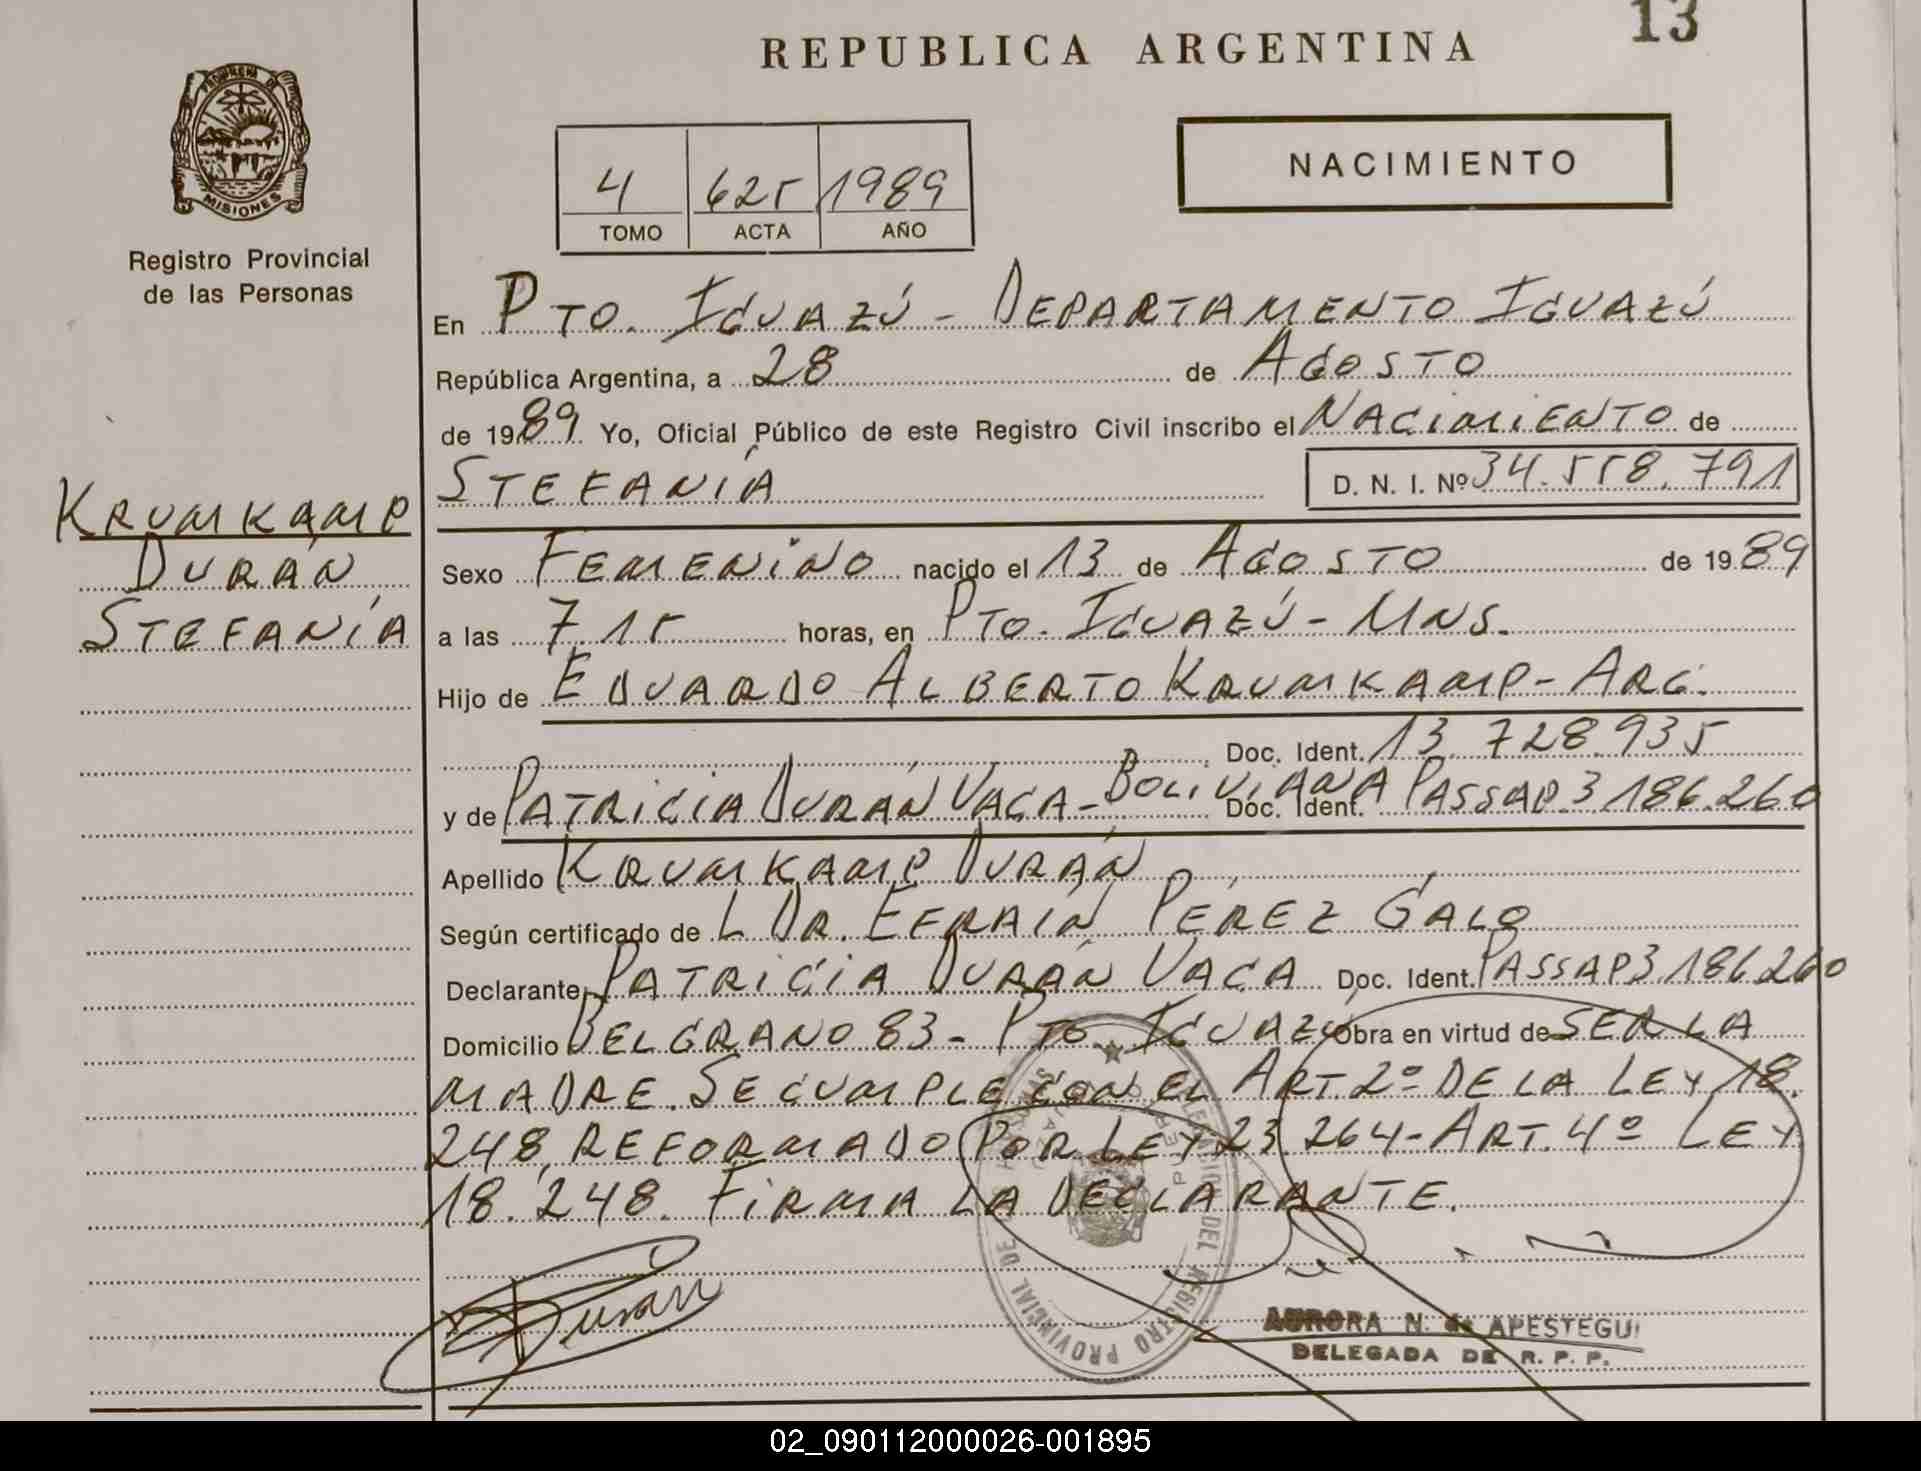 13
REPUBLICA ARGENTINA
NACIMIENTO
4 625 1989
TOMO ACTA AÑO
MISIONES
Registro Provincial
de las Personas
En PTO. IGUAZÚ - DEPARTAMENTO IGUAZÚ
República Argentina, a 28 de AGOSTO
de 1989 Yo, Oficial Público de este Registro Civil inscribo el NACIMIENTO de
STEFANÍA D. N. I. Nº 34.558.791
KRUMKAMP
DURÁN
STEFANÍA
Sexo FEMENINO nacido el 13 de AGOSTO de 1989
a las 7.15 horas, en PTO. IGUAZÚ - MNS.
Hijo de EDUARDO ALBERTO KRUMKAMP - ARG.
Doc. Ident. 13.728.935
y de PATRICIA DURÁN VACA - BOLIVIANA Doc. Ident. PASSAP 3186.260
Apellido KRUMKAMP DURÁN
Según certificado de L DR. EFRAÍN PÉREZ GALO
Declarante PATRICIA DURÁN VACA Doc. Ident. PASSAP 3.186.260
Domicilio BELGRANO 83 - PTO. IGUAZÚ Obra en virtud de SER LA
MADRE. SE CUMPLE CON EL ART. 2º DE LA LEY 18.
248, REFORMADO POR LEY 23.264 - ART. 4º LEY
18.248. FIRMA LA DECLARANTE.
Duran
AURORA N. de APESTEGUI
DELEGADA DE R. P. P.
02_090112000026-001895